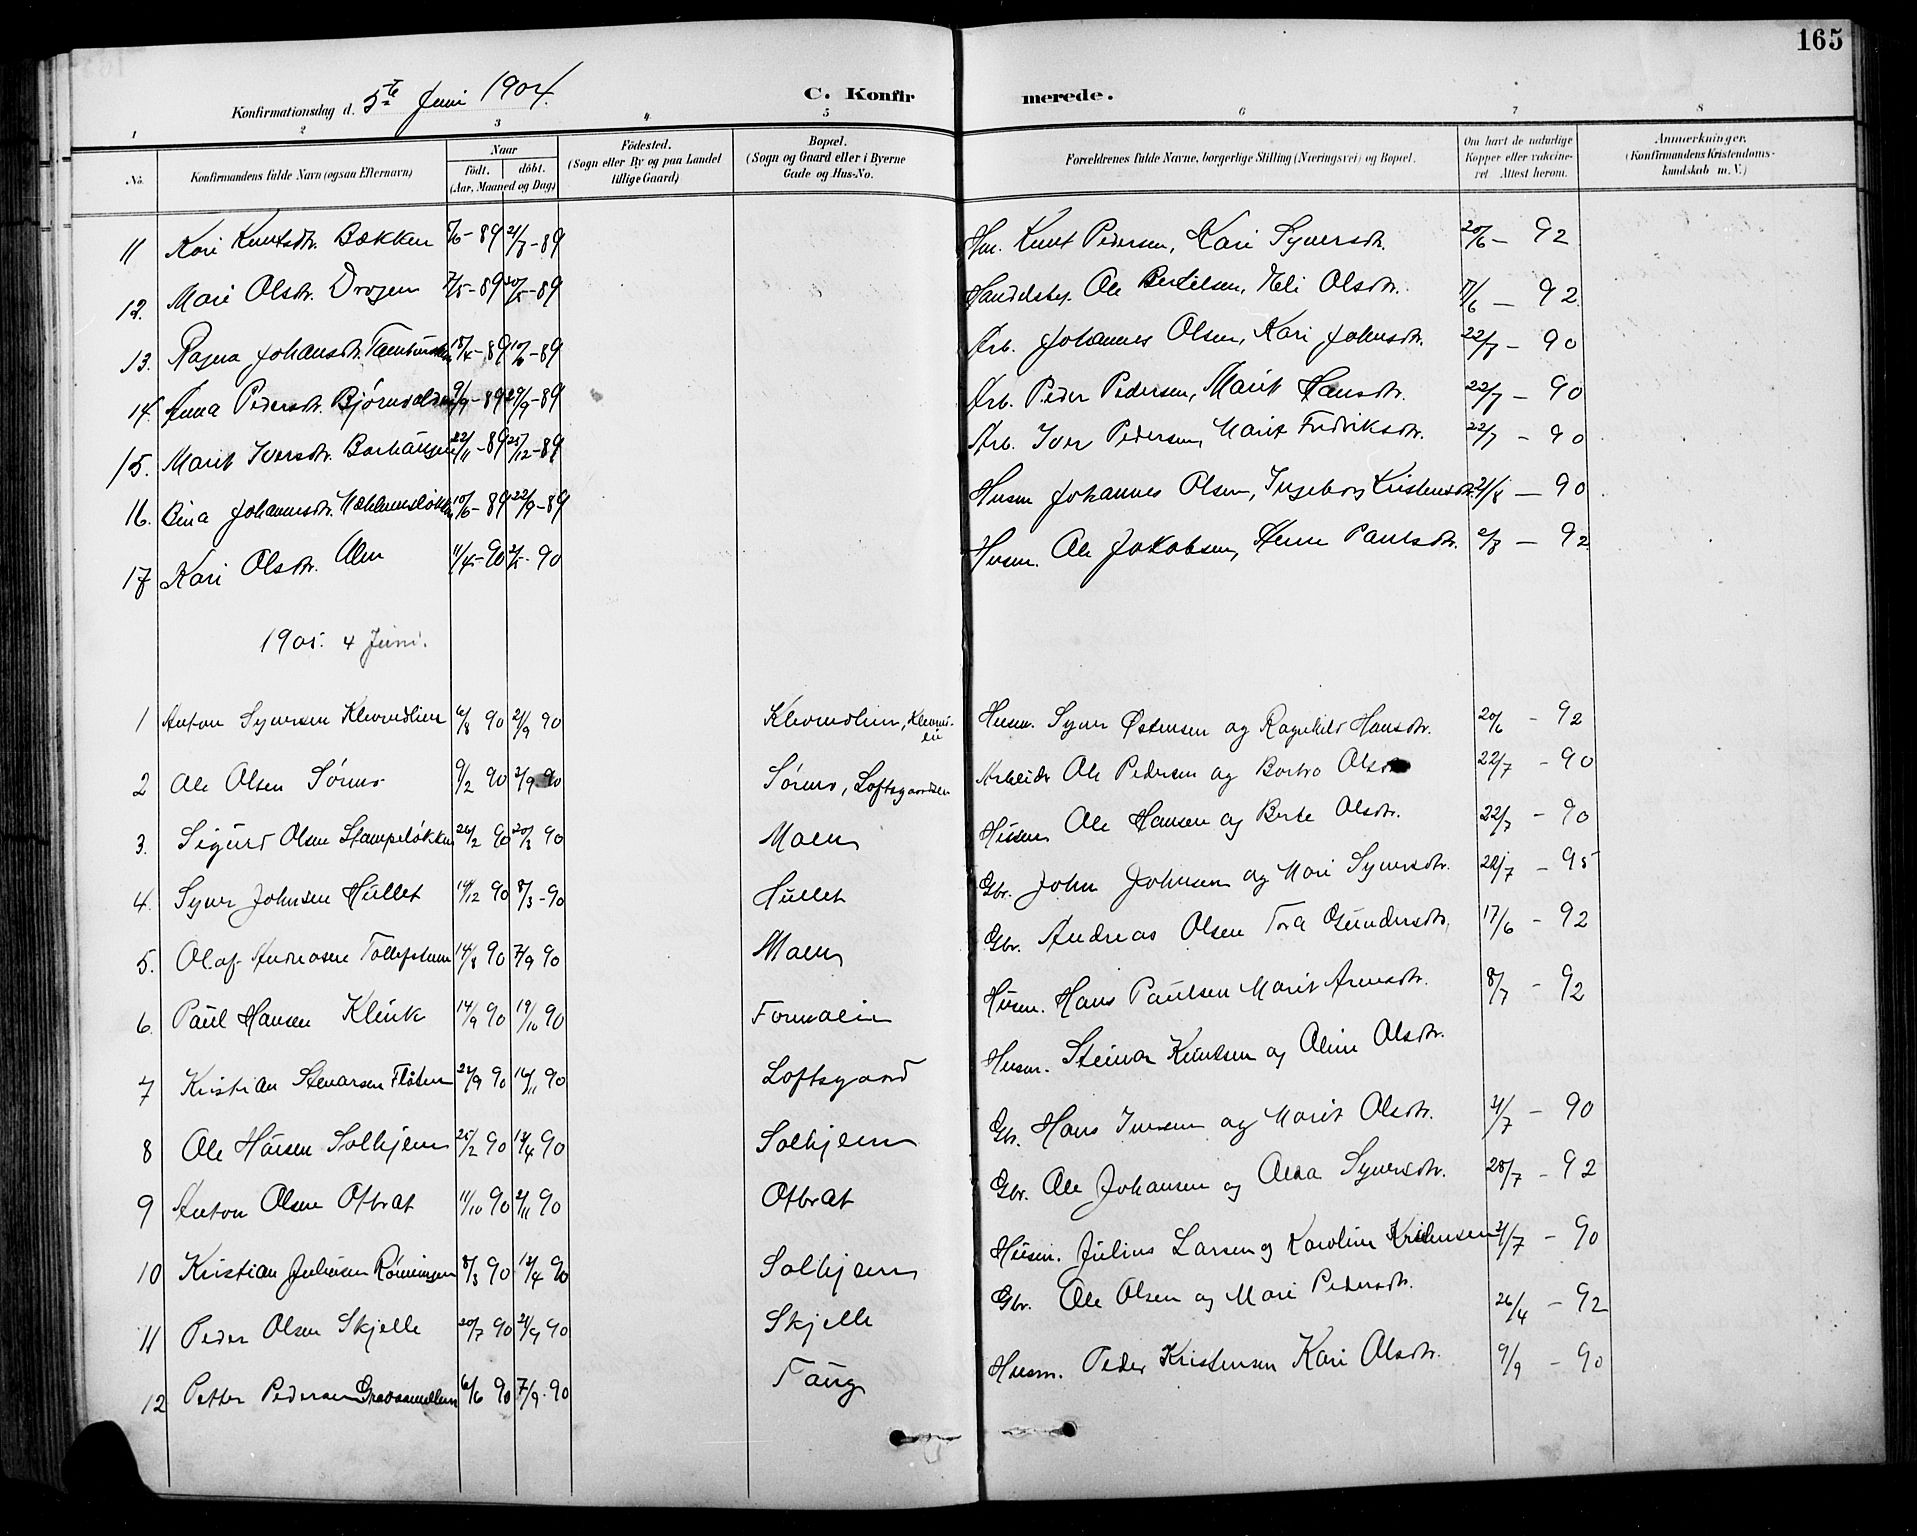 165
Konfirmationsdag d. 5te Juni 1904. C. Konfirmerede.
1 2 3 4 5 6 7 8
No. Konfirmandens fulde Navn (ogsaa Efternavn) Naar født. døbt. (Aar, Maaned og Dag) Födested. (Sogn eller By og paa Landet tillige Gaard) Bopæl. (Sogn og Gaard eller i Byerne Gade og Hus-No. Forældrenes fulde Navne, borgerlige Stilling (Næringsvei) og Bopæl. Om havt de naturlige Kopper eller vaccineret Attest herom. Anmerkninger. (Konfirmandens Kristendomskundskab m. V.)
11 Kari Knutsdtr. Bækken 8/6-89 21/7-89 Hm. Knut Pedersen, Kari Syversdtr. 20/6 - 92
12. Mari Olsdtr. Drogen 7/5-89 30/5-89 Handelsbet. Ole Bertilsen, Eli Olsdtr. 17/6 - 92
13. Ragna Johansdtr. 18/4-89 10/6-89 Arb. Johannes Olsen, Kari Johnsdtr. 22/7 - 90
14. Anna Pedersdtr. 9/9-89 29/9-89 Arb. Peder Pedersen, Marit Hansdtr. 22/7 - 90
15. Marit Iversdtr. Barhaugen 22/11-89 25/12-89 Arb. Iver Pedersen, Marit Fredriksdtr. 22/7 - 90
16. Bina Johannesdtr. 10/6-89 22/9-89 Husm Johannes Olsen, Ingeborg Kristensdtr. 21/8 - 90
17 Kari Olsdtr. Alm 11/4-90 2/5-90 Husm. Ole Jakobsen, Paulsdtr. 2/8 - 92
1905. 4 Juni.
1 Anton Syversen Klevmolien 6/8 90 21/9 90 Klevmolien, Husm. Syver Østensen og Ragnhild Hansdtr. 20/6 - 92
2 Ole Olsen Sørmo 9/2 90 2/9 90 Sørmo, Loftsgaardseie Arbeider Ole Pedersen og Barbro Olsdtr 22/7 - 90
3. Sigurd Olsen Stampeløkken 26/2 90 20/3 90 Moen Husm Ole Hansen og Berte Olsdtr. 22/7 - 90
4. Syver Johnsen Hullet 14/12 90 8/3-90 Hullet Gbr. John Johnsen og Mari Syversdtr. 28/7 - 95
5. Olaf Andreasen Tollefstuen 14/8 90 7/9 90 Moen Gbr. Andreas Olsen Tora Gundersdtr, 17/6 - 92
6. Paul Hansen Klink 14/9 90 19/10 90 Formoein Husm. Hans Paulsen Marit Arnesdtr. 8/7 - 92
7 Kristian Stenarsen Fløten 24/9 90 16/11 90 Loftsgaard Husm. Steinar Knutsen og Oline Olsdtr.
8 Ole Hansen Solhjem 25/2 90 14/4 90 Solhjem Gbr. Hans Iversen og Marit Olsdtr. 21/7 - 90
9 Anton Olsen Otbrat 11/10 90 2/11 90 Otbrat Gbr. Ole Johansen og Olea Syversdtr. 28/7 - 92
10 Kristian Juliusen Rønningen 8/3 90 13/4 90 Solhjem Husm. Julius Larsen og Karoline Kristensen 21/7 - 90
11 Peder Olsen Skjelle 20/7 90 21/9 90 Skjelle Gbr. Ole Olsen og Mari Pedersdtr. 26/4 - 92
12 Petter Pedersen Gravaamellem 6/6 90 7/9-90 Taug Husm. Peder Kristensen Kari Olsdtr. 9/9 - 90